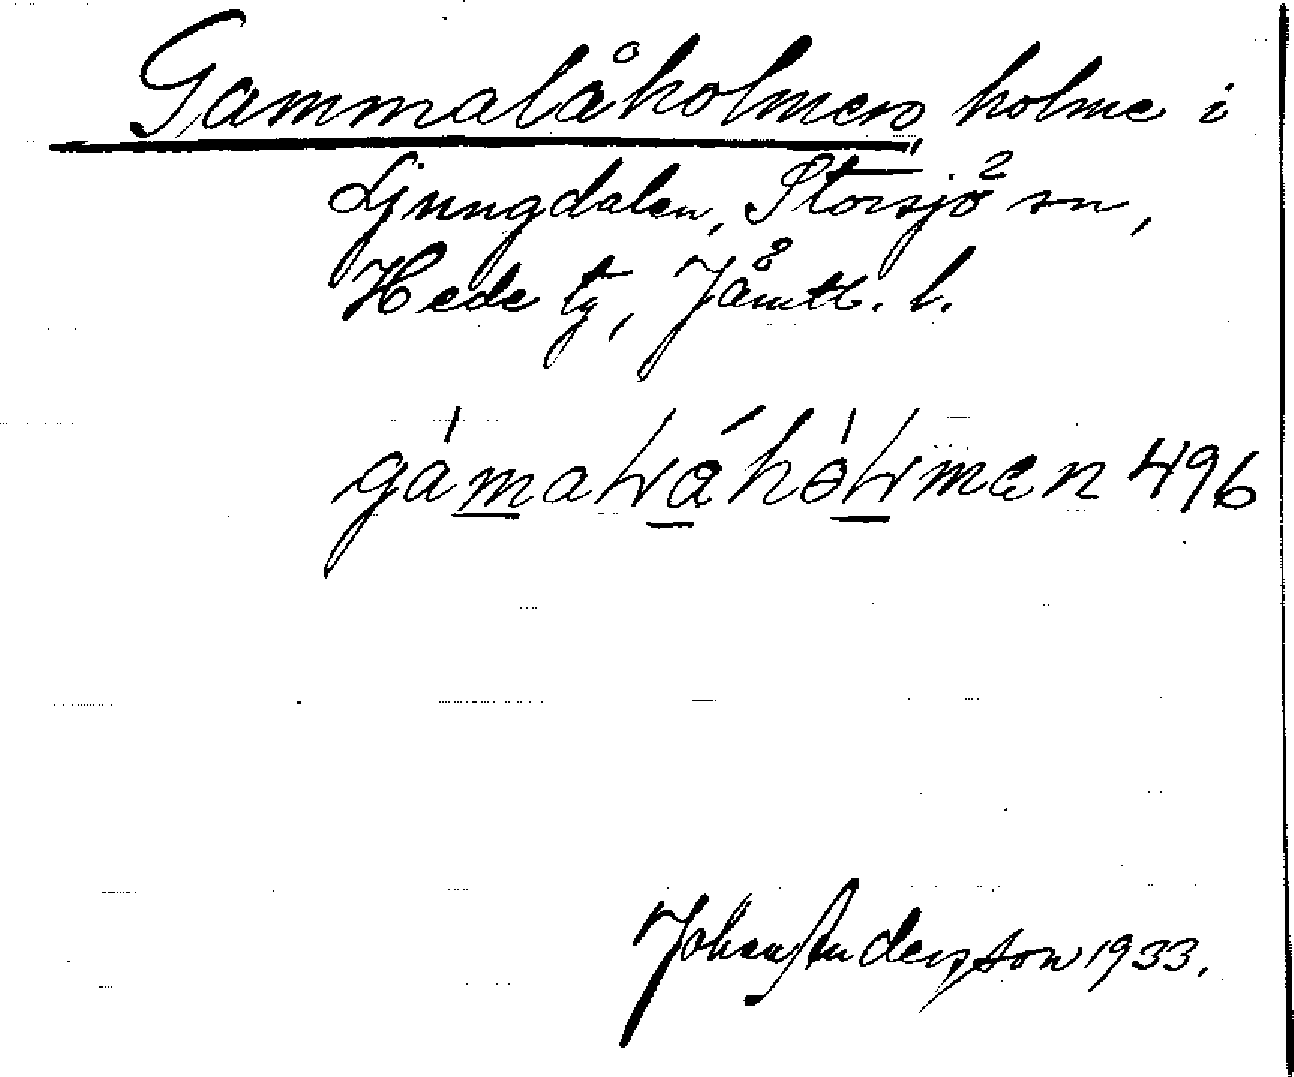 Gammalåholmen, holme i
Ljungdalen, Storsjö sn,
Hede tg, Jämtl. l.
496
Johan Andersson 1933.